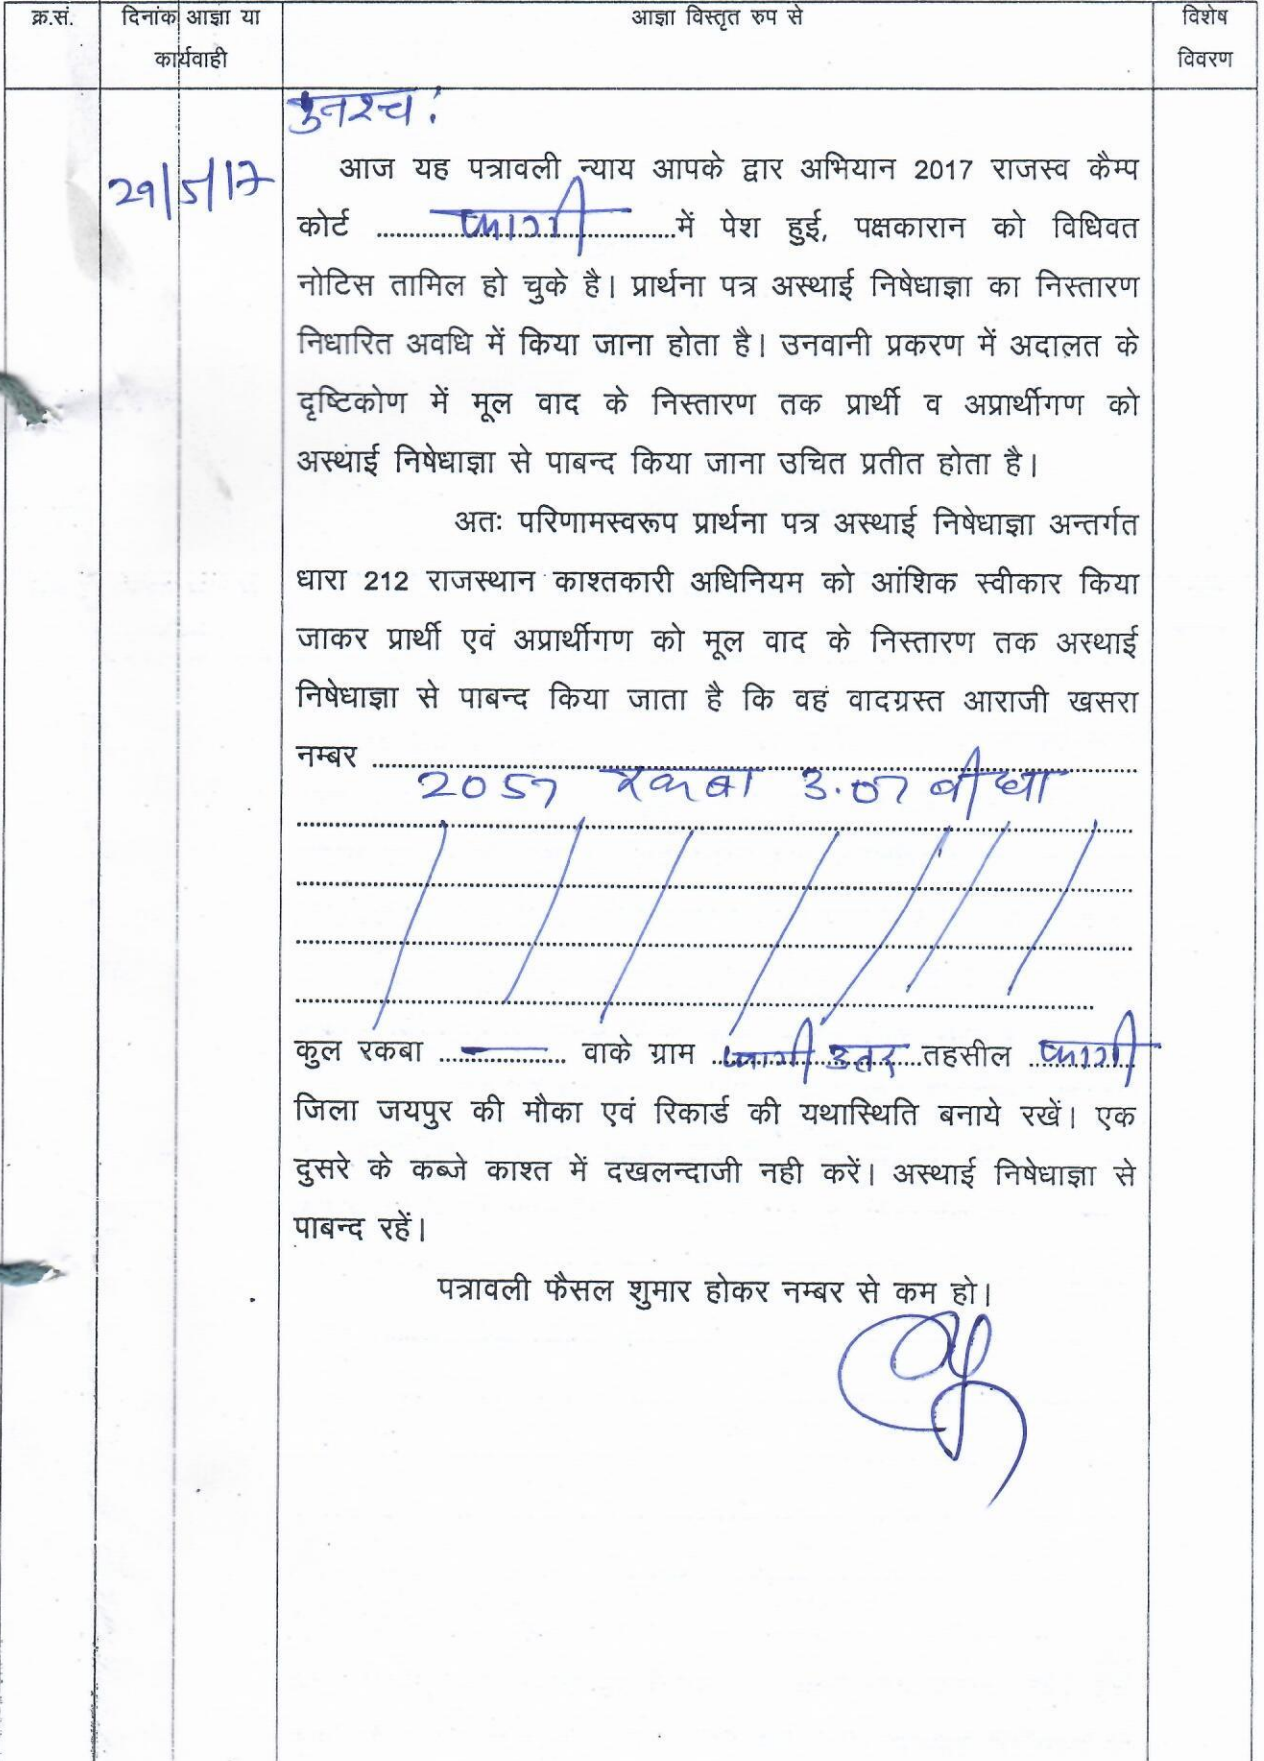 क्र.सं. दिनांक आज्ञा या आज्ञा विस्तृत रुप से विशेष
कार्यवाही विवरण
पुनश्च :
29/5/17 आज यह पत्रावली न्याय आपके द्वार अभियान 2017 राजस्व कैम्प
कोर्ट ..........फागी..........में पेश हुई, पक्षकारान को विधिवत
नोटिस तामिल हो चुके है। प्रार्थना पत्र अस्थाई निषेधाज्ञा का निस्तारण
निधारित अवधि में किया जाना होता है। उनवानी प्रकरण में अदालत के
दृष्टिकोण में मूल वाद के निस्तारण तक प्रार्थी व अप्रार्थीगण को
अस्थाई निषेधाज्ञा से पाबन्द किया जाना उचित प्रतीत होता है।
अतः परिणामस्वरूप प्रार्थना पत्र अस्थाई निषेधाज्ञा अन्तर्गत
धारा 212 राजस्थान काश्तकारी अधिनियम को आंशिक स्वीकार किया
जाकर प्रार्थी एवं अप्रार्थीगण को मूल वाद के निस्तारण तक अस्थाई
निषेधाज्ञा से पाबन्द किया जाता है कि वह वादग्रस्त आराजी खसरा
नम्बर ..........
2057 रकबा 3.07 बीघा
कुल रकबा .....—..... वाके ग्राम .....फागी उत्तर.....तहसील .....फागी
जिला जयपुर की मौका एवं रिकार्ड की यथास्थिति बनाये रखें। एक
दुसरे के कब्जे काश्त में दखलन्दाजी नही करें। अस्थाई निषेधाज्ञा से
पाबन्द रहें।
पत्रावली फैसल शुमार होकर नम्बर से कम हो।